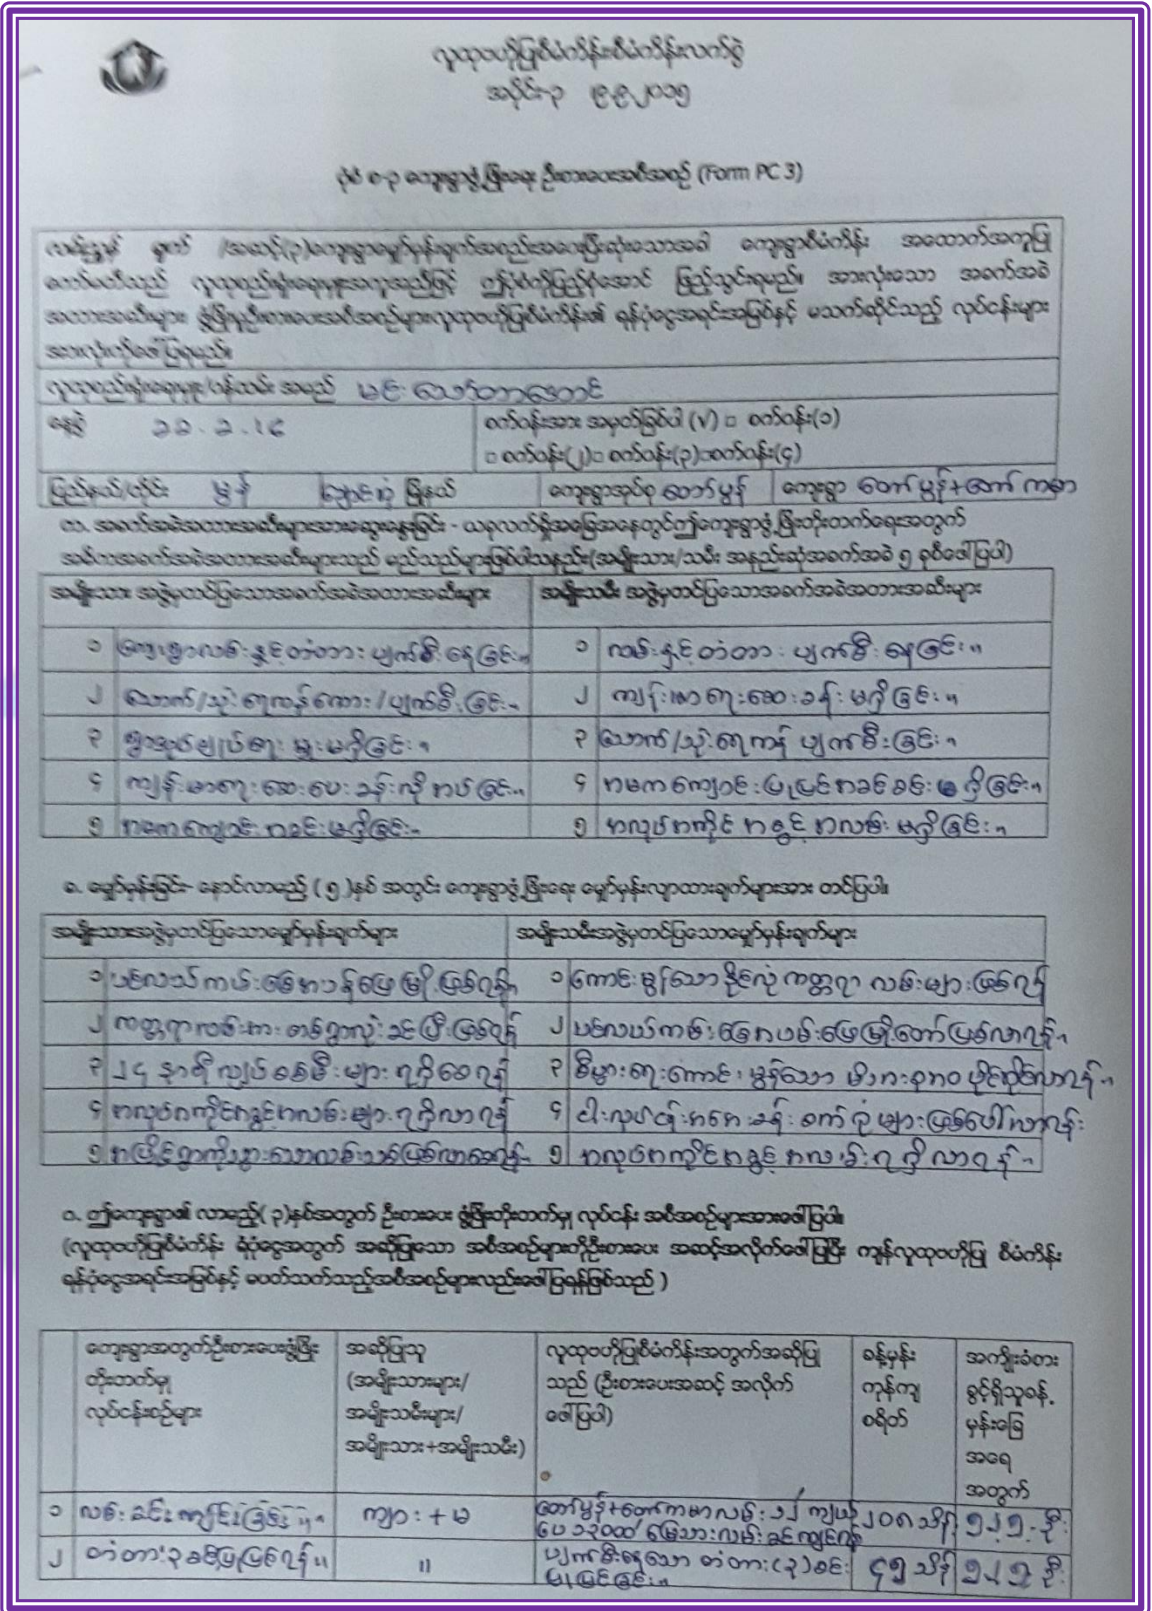 လူထုဗဟိုပြုစီမံကိန်းစီမံကိန်းလက်စွဲ
အပိုင်း-၃ ၉-၉-၂၀၁၅
ပုံစံ စ-၃ ကျေးရွာဖွံ့ဖြိုးရေး ဦးစားပေးအစီအစဉ် (Form PC 3)
လမ်းညွှန် ချက် /အဆင့်(၃)ကျေးရွာမျှော်မှန်းချက်အစည်းအဝေးပြီးဆုံးသောအခါ ကျေးရွာစီမံကိန်း အထောက်အကူပြု
ကော်မတီသည် လူထုစည်းရုံးရေးမှူးအကူအညီဖြင့် ဤပုံစံကိုပြည့်စုံအောင် ဖြည့်သွင်းရမည်။ အားလုံးသော အခက်အခဲ
အတားအဆီးများ ဖွံ့ဖြိုးမှုဦးစားပေးအစီအစဉ်များလူထုဗဟိုပြုစီမံကိန်း၏ ရန်ပုံငွေအရင်းအမြစ်နှင့် မသက်ဆိုင်သည့် လုပ်ငန်းများ
အားလုံးကိုဖော်ပြရမည်။
လူထုစည်းရုံးရေးမှူး/ဝန်ထမ်း အမည် မင်း
နေ့စွဲ ၁၁.၁.၁၆ စက်ဝန်းအား အမှတ်ခြစ်ပါ (√) □ စက်ဝန်း(၁)
□ စက်ဝန်း(၂)□ စက်ဝန်း(၃)□စက်ဝန်း(၄)
ပြည်နယ်/တိုင်း မွန် မြို့နယ် ကျေးရွာအုပ်စု တော်မွန် ကျေးရွာ တော်မွန်+တော်ကမာ
က. အခက်အခဲအတားအဆီးများအားဆွေးနွေးခြင်း - ယခုလက်ရှိအခြေအနေတွင်ဤကျေးရွာဖွံ့ဖြိုးတိုးတက်ရေးအတွက်
အဓိကအခက်အခဲအတားအဆီးများသည် မည်သည်များဖြစ်ပါသနည်း(အမျိုးသား/သမီး အနည်းဆုံအခက်အခဲ ၅ ခုစီဖော်ပြပါ)
အမျိုးသား အဖွဲ့မှတင်ပြသောအခက်အခဲအတားအဆီးများ အမျိုးသမီး အဖွဲ့မှတင်ပြသောအခက်အခဲအတားအဆီးများ
၁ ကျေးရွာလမ်းနှင့်တံတား ပျက်စီးနေခြင်း။ ၁ လမ်းနှင့်တံတား ပျက်စီးနေခြင်း။
၂ သောက်/သုံးရေကန်ကော/ပျက်စီးခြင်း။ ၂ ကျန်းမာရေးဆေးခန်းမရှိခြင်း။
၃ မရှိခြင်း။ ၃ သောက်/သုံးရေကန် ပျက်စီးခြင်း။
၄ ကျန်းမာရေးဆေးပေးခန်းလိုအပ်ခြင်း။ ၄ အမကကျောင်းပြုပြင်အခင်းခင်းမရှိခြင်း။
၅ အမကကျောင်းအခင်းမရှိခြင်း။ ၅ အလုပ်အကိုင်အခွင့်အလမ်းမရှိခြင်း။
ခ. မျှော်မှန်းခြင်း- နောင်လာမည့် (၅)နှစ် အတွင်း ကျေးရွာဖွံ့ဖြိုးရေး မျှော်မှန်းလျာထားချက်များအား တင်ပြပါ။
အမျိုးသားအဖွဲ့မှတင်ပြသောမျှော်မှန်းချက်များ အမျိုးသမီးအဖွဲ့မှတင်ပြသောမျှော်မှန်းချက်များ
၁ ပင်လယ်ကမ်းခြေအပန်းဖြေမြို့ဖြစ်ရန်။ ၁ ကောင်းမွန်သော နိုင်လွန်ကတ္တရာ လမ်းများဖြစ်ရန်
၂ ကတ္တရာလမ်းကားတစ်ရွာလုံးခင်းပြီးဖြစ်ရန် ၂ ပင်လယ်ကမ်းခြေအပမ်းဖြေမြို့တော်ဖြစ်လာရန်။
၃ ၂၄ နာရီလျှပ်စစ်မီးများရရှိစေရန် ၃ စီးပွားရေးကောင်းမွန်သော
၄ အလုပ်အကိုင်အခွင့်အလမ်းများရရှိလာရန် ၄ ငါးလုပ်ငန်းအအေးခန်းစက်ရုံများဖြစ်ပေါ်လာရန်း
၅ ၅ အလုပ်အကိုင်အခွင့်အလမ်းရရှိလာရန်။
ဂ. ဤကျေးရွာ၏ လာမည့်(၃)နှစ်အတွက် ဦးစားပေး ဖွံ့ဖြိုးတိုးတက်မှု လုပ်ငန်း အစီအစဉ်များအားဖော်ပြပါ။
(လူထုဗဟိုပြုစီမံကိန်း ရံပုံငွေအတွက် အဆိုပြုသော အစီအစဉ်များကိုဦးစားပေး အဆင့်အလိုက်ဖော်ပြပြီး ကျန်လူထုဗဟိုပြု စီမံကိန်း
ရန်ပုံငွေအရင်းအမြစ်နှင့် မပတ်သက်သည့်အစီအစဉ်များလည်းဖော်ပြရန်ဖြစ်သည် )
ကျေးရွာအတွက်ဦးစားပေးဖွံ့ဖြိုး
တိုးတက်မှု
လုပ်ငန်းစဉ်များ
အဆိုပြုသူ
(အမျိုးသားများ/
အမျိုးသမီးများ/
အမျိုးသား+အမျိုးသမီး)
လူထုဗဟိုပြုစီမံကိန်းအတွက်အဆိုပြု
သည် (ဦးစားပေးအဆင့် အလိုက်
ဖော်ပြပါ)
ခန့်မှန်း
ကုန်ကျ
စရိတ်
အကျိုးခံစား
ခွင့်ရှိသူခန့်
မှန်းခြေ
အရေ
အတွက်
၁ လမ်းခင်းကျင်းခြင်း။ ကျား+မ တော်မွန်+တော်ကမာလမ်း ၁၂ ကျယ် ၂၀၈သိန်း ၅၂၅-ဦး
ပေ ၁၃၀၀ မြေသားလမ်းခင်းကျင်းရန်
၂ တံတား၃ခုပြုပြင်ရန်။ 〃 ပျက်စီးနေသော တံတား(၃)စင်း ၄၅သိန်း ၅၂၅ဦး
ပြုပြင်ခြင်း။